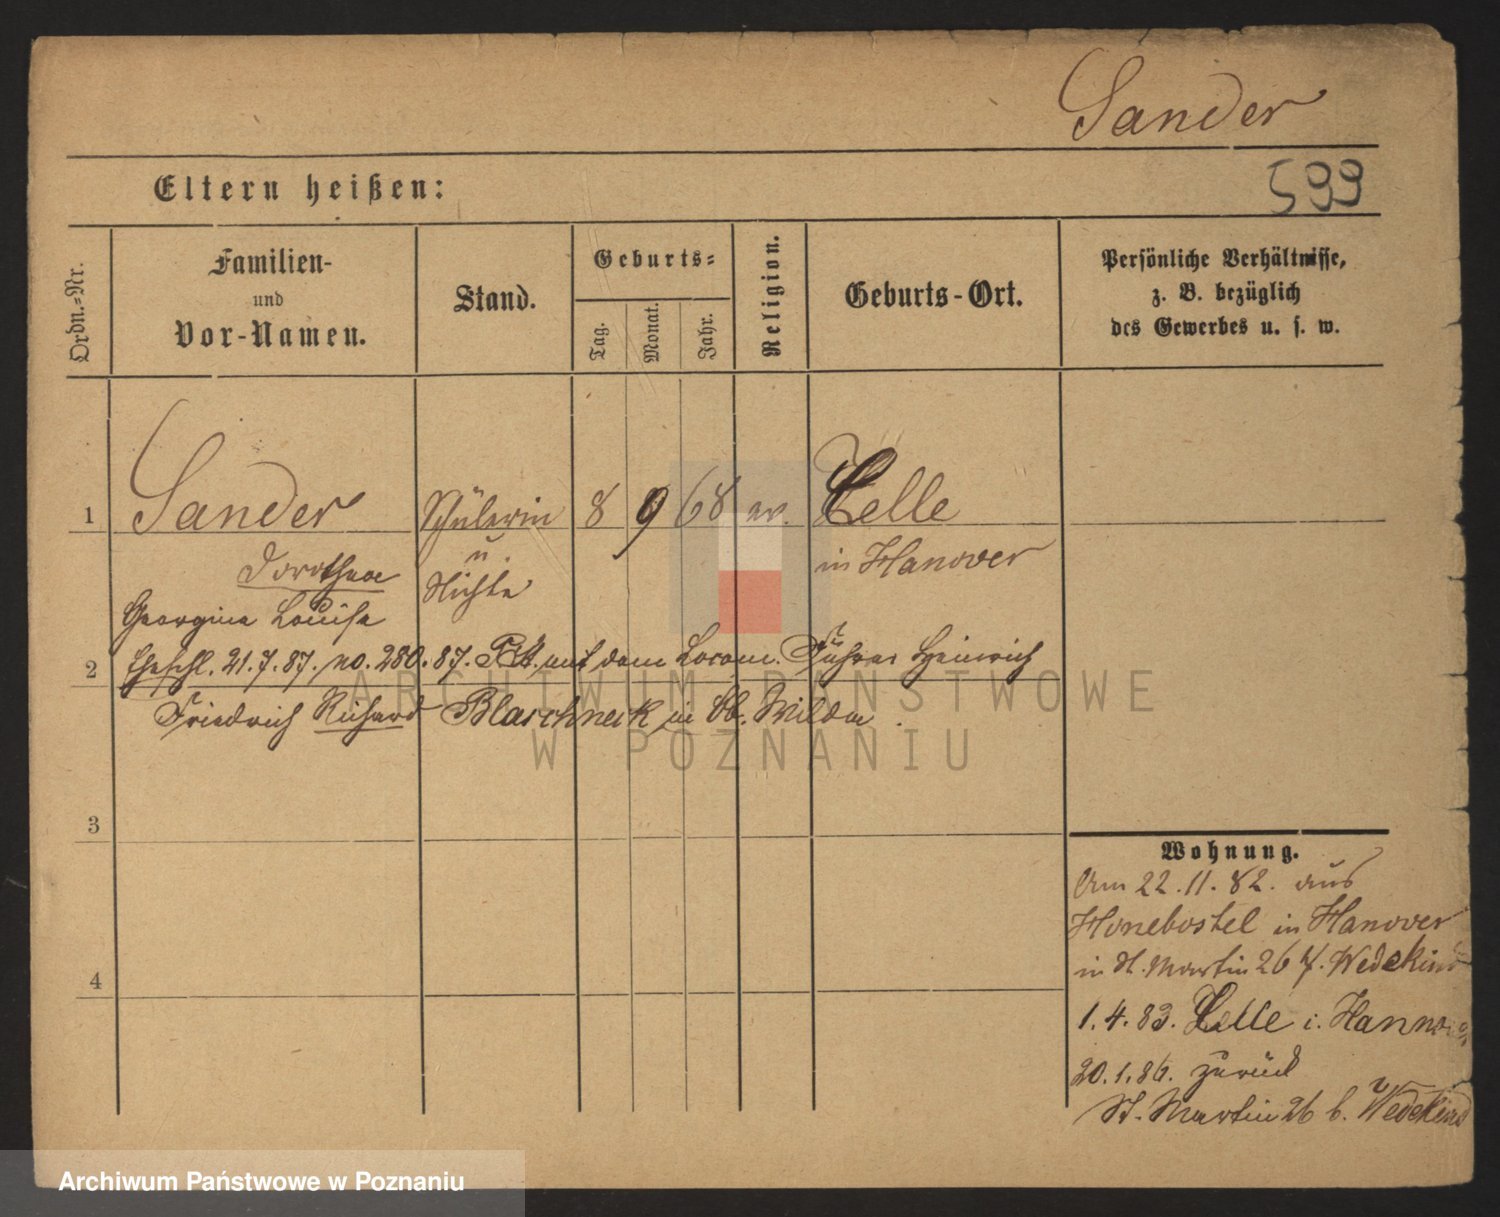 Sander
Eltern heißen:
599
Ordn.=Nr.
Familien-
und
Vor-Namen.
Stand.
Geburts=
Tag.
Monat.
Jahr.
Religion.
Geburts-Ort.
Persönliche Verhältnisse,
z. B. bezüglich
des Gewerbes u. s. w.
1 Sander Schülerin 8 9 68 ev. Celle
u. in Hanover
Dorothea Nichte
Georgine Louise
2 Eheschl. 21.7.87. no. 280. 87. mit dem Locom. Führer Heinrich
Friedrich Richard Blaschneck in Wilda.
3
4
Wohnung.
Am 22.11.82. aus
Honebostel in Hanover
in St. Martin 26 Wedekind
1.4.83. Celle i. Hannover
20.1.86. zurück
St. Martin 26 b. Wedekind
ARCHIWUM PAŃSTWOWE
W POZNANIU
Archiwum Państwowe w Poznaniu